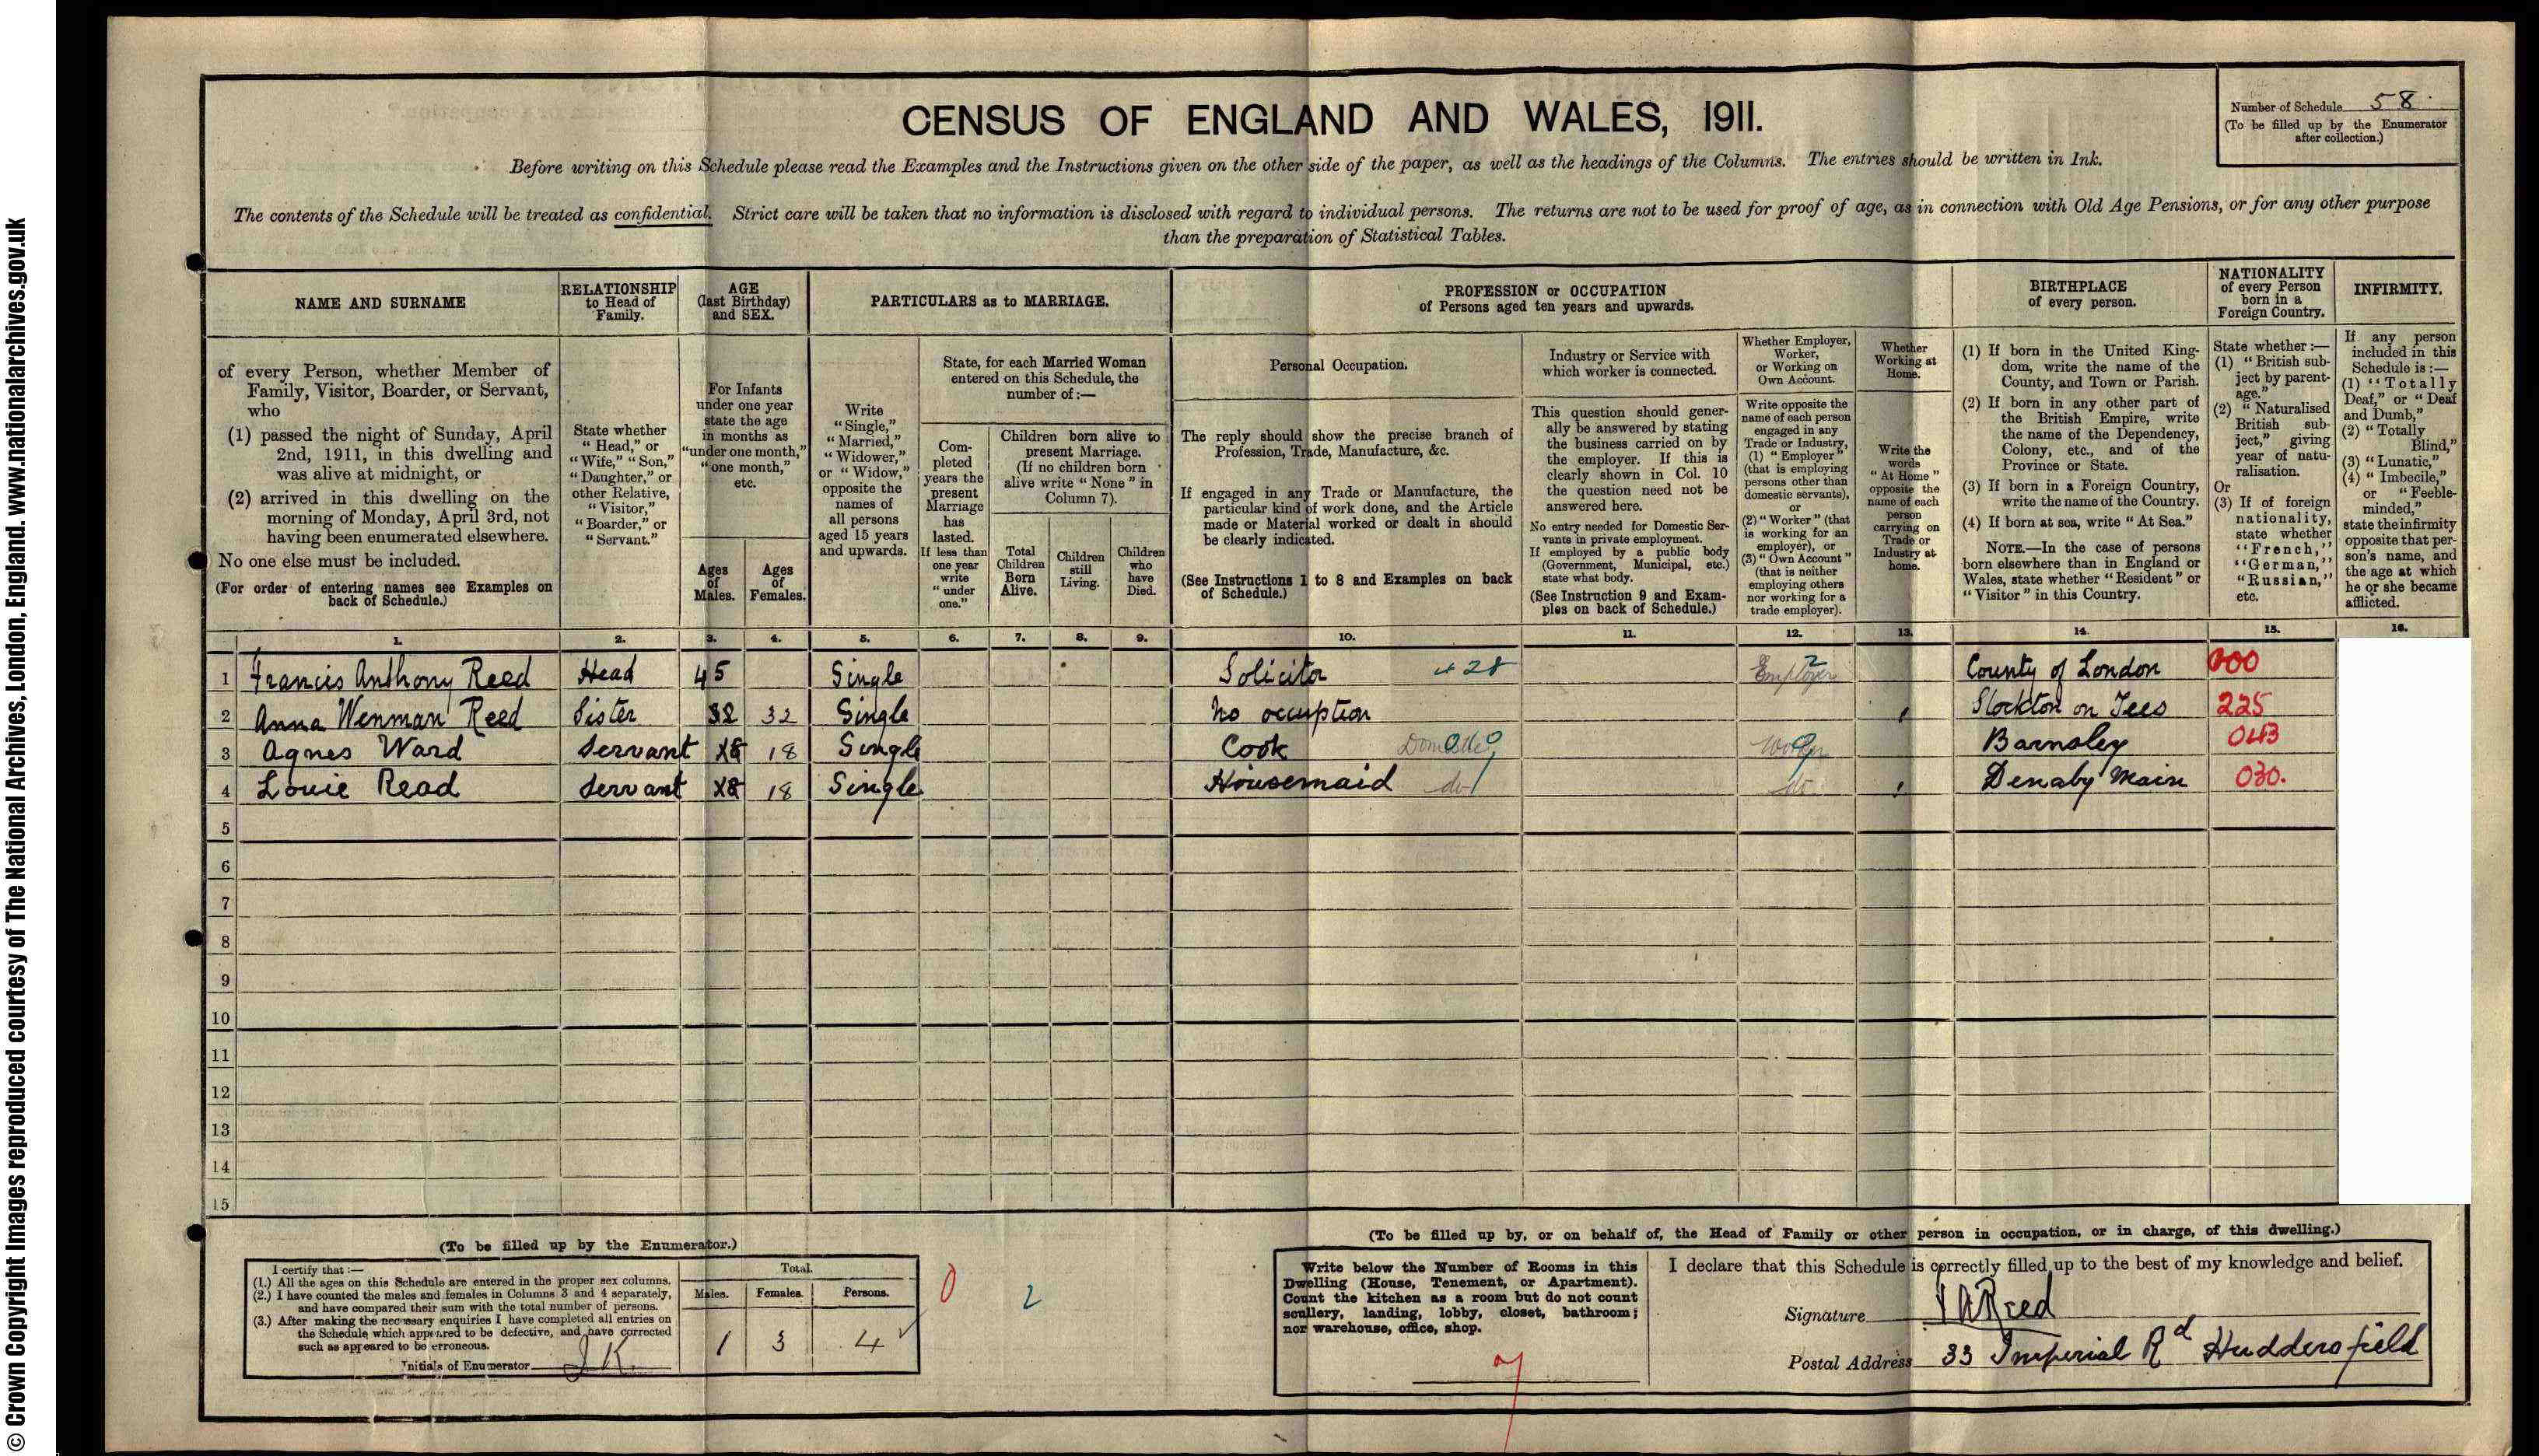 © Crown Copyright Images reproduced courtesy of The National Archives, London, England. www.nationalarchives.gov.uk
CENSUS OF ENGLAND AND WALES, 1911.
Number of Schedule 58.
(To be filled up by the Enumerator
after collection.)
Before writing on this Schedule please read the Examples and the Instructions given on the other side of the paper, as well as the headings of the Columns. The entries should be written in Ink.
The contents of the Schedule will be treated as confidential. Strict care will be taken that no information is disclosed with regard to individual persons. The returns are not to be used for proof of age, as in connection with Old Age Pensions, or for any other purpose
than the preparation of Statistical Tables.
NAME AND SURNAME
of every Person, whether Member of
Family, Visitor, Boarder, or Servant,
who
(1) passed the night of Sunday, April
2nd, 1911, in this dwelling and
was alive at midnight, or
(2) arrived in this dwelling on the
morning of Monday, April 3rd, not
having been enumerated elsewhere.
No one else must be included.
(For order of entering names see Examples on
back of Schedule.)
RELATIONSHIP
to Head of
Family.
State whether
"Head," or
"Wife," "Son,"
"Daughter," or
other Relative,
"Visitor,"
"Boarder," or
"Servant."
AGE
(last Birthday)
and SEX.
For Infants
under one year
state the age
in months as
"under one month,"
"one month,"
etc.
Ages
of
Males.
Ages
of
Females.
PARTICULARS as to MARRIAGE.
Write
"Single,"
"Married,"
"Widower,"
or "Widow,"
opposite the
names of
all persons
aged 15 years
and upwards.
State, for each Married Woman
entered on this Schedule, the
number of:—
Com-
pleted
years the
present
Marriage
has
lasted.
If less than
one year
write
"under
one."
Children born alive to
present Marriage.
(If no children born
alive write "None" in
Column 7).
Total
Children
Born
Alive.
Children
still
Living.
Children
who
have
Died.
PROFESSION or OCCUPATION
of Persons aged ten years and upwards.
Personal Occupation.
The reply should show the precise branch of
Profession, Trade, Manufacture, &c.
If engaged in any Trade or Manufacture, the
particular kind of work done, and the Article
made or Material worked or dealt in should
be clearly indicated.
(See Instructions 1 to 8 and Examples on back
of Schedule.)
Industry or Service with
which worker is connected.
This question should gener-
ally be answered by stating
the business carried on by
the employer. If this is
clearly shown in Col. 10
the question need not be
answered here.
No entry needed for Domestic Ser-
vants in private employment.
If employed by a public body
(Government, Municipal, etc.)
state what body.
(See Instruction 9 and Exam-
ples on back of Schedule.)
Whether Employer,
Worker,
or Working on
Own Account.
Write opposite the
name of each person
engaged in any
Trade or Industry,
(1) "Employer"
(that is employing
persons other than
domestic servants),
or
(2) "Worker" (that
is working for an
employer), or
(3) "Own Account"
(that is neither
employing others
nor working for a
trade employer).
Whether
Working at
Home.
Write the
words
"At Home"
opposite the
name of each
person
carrying on
Trade or
Industry at
home.
BIRTHPLACE
of every person.
(1) If born in the United King-
dom, write the name of the
County, and Town or Parish.
(2) If born in any other part of
the British Empire, write
the name of the Dependency,
Colony, etc., and of the
Province or State.
(3) If born in a Foreign Country,
write the name of the Country.
(4) If born at sea, write "At Sea."
NOTE.—In the case of persons
born elsewhere than in England or
Wales, state whether "Resident" or
"Visitor" in this Country.
NATIONALITY
of every Person
born in a
Foreign Country.
State whether:—
(1) "British sub-
ject by parent-
age."
(2) "Naturalised
British sub-
ject," giving
year of natu-
ralisation.
Or
(3) If of foreign
nationality,
state whether
"French,"
"German,"
"Russian,"
etc.
INFIRMITY.
If any person
included in this
Schedule is:—
(1) "Totally
Deaf," or "Deaf
and Dumb,"
(2) "Totally
Blind,"
(3) "Lunatic,"
(4) "Imbecile,"
or "Feeble-
minded,"
state the infirmity
opposite that per-
son's name, and
the age at which
he or she became
afflicted.
1. 2. 3. 4. 5. 6. 7. 8. 9. 10. 11. 12. 13. 14. 15. 16.
1 Francis Anthony Reed Head 45 Single Solicitor 428 Employer 2 County of London 000
2 Anna Wenman Reed Sister 32 32 Single No occuption Stockton on Tees 225
3 Agnes Ward Servant 18 18 Single Cook Domestic Worker Barnsley 043
4 Louie Read Servant 18 18 Single Housemaid do do Denaby Main 030.
5
6
7
8
9
10
11
12
13
14
15
(To be filled up by the Enumerator.)
I certify that:—
(1.) All the ages on this Schedule are entered in the proper sex columns.
(2.) I have counted the males and females in Columns 3 and 4 separately,
and have compared their sum with the total number of persons.
(3.) After making the necessary enquiries I have completed all entries on
the Schedule which appeared to be defective, and have corrected
such as appeared to be erroneous.
Initials of Enumerator J K.
Total.
Males. Females. Persons.
1 3 4
0 2
(To be filled up by, or on behalf of, the Head of Family or other person in occupation, or in charge, of this dwelling.)
Write below the Number of Rooms in this
Dwelling (House, Tenement, or Apartment).
Count the kitchen as a room but do not count
scullery, landing, lobby, closet, bathroom;
nor warehouse, office, shop.
I declare that this Schedule is correctly filled up to the best of my knowledge and belief.
Signature FAReed
Postal Address 33 Imperial Rd Huddersfield